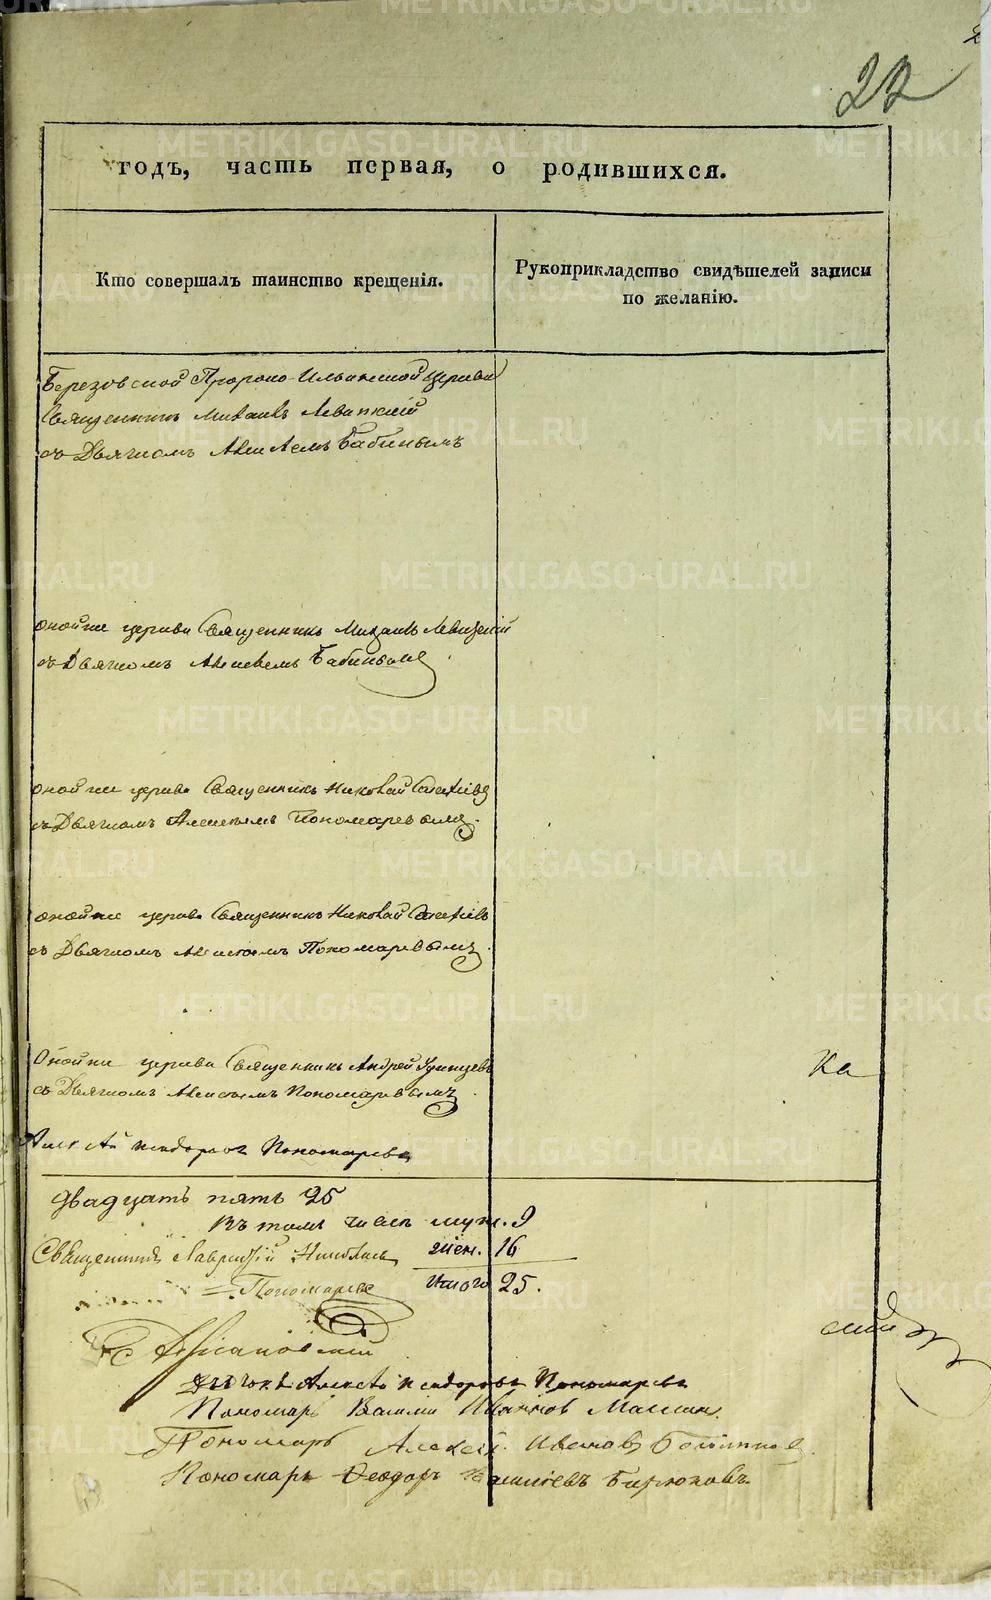 22
годъ, часть первая, о родившихся.
Кто совершалъ таинство крещенія.
Рукоприкладство свидѣтелей записи
по желанію.
Березовской Пророко-Ильинской церкви
Священникъ Михаилъ Левицкій
съ Дьячкомъ Алексѣемъ Бабинымъ
оной же церкви Священникъ Михаилъ Левицкій
съ Дьячкомъ Алексѣемъ Бабинымъ
оной же церкви Священникъ Николай
съ Дьячкомъ Алексѣемъ Пономаревымъ.
оной же церкви Священникъ Николай
съ Дьячкомъ Алексѣемъ Пономаревымъ.
Оной же церкви Священникъ Андрей Удинцевъ
съ Дьячкомъ Алексѣемъ Пономаревымъ.
Ка
Пономаревъ
двадцать пять 25
Въ томъ числѣ муж. 9
Священникъ жен. 16
Пономаревъ Итого 25.
Пономаревъ
Пономарь
Пономарь Алексѣй Ивановъ
Пономарь Феодоръ Бирюковъ
METRIKI.GASO-URAL.RU